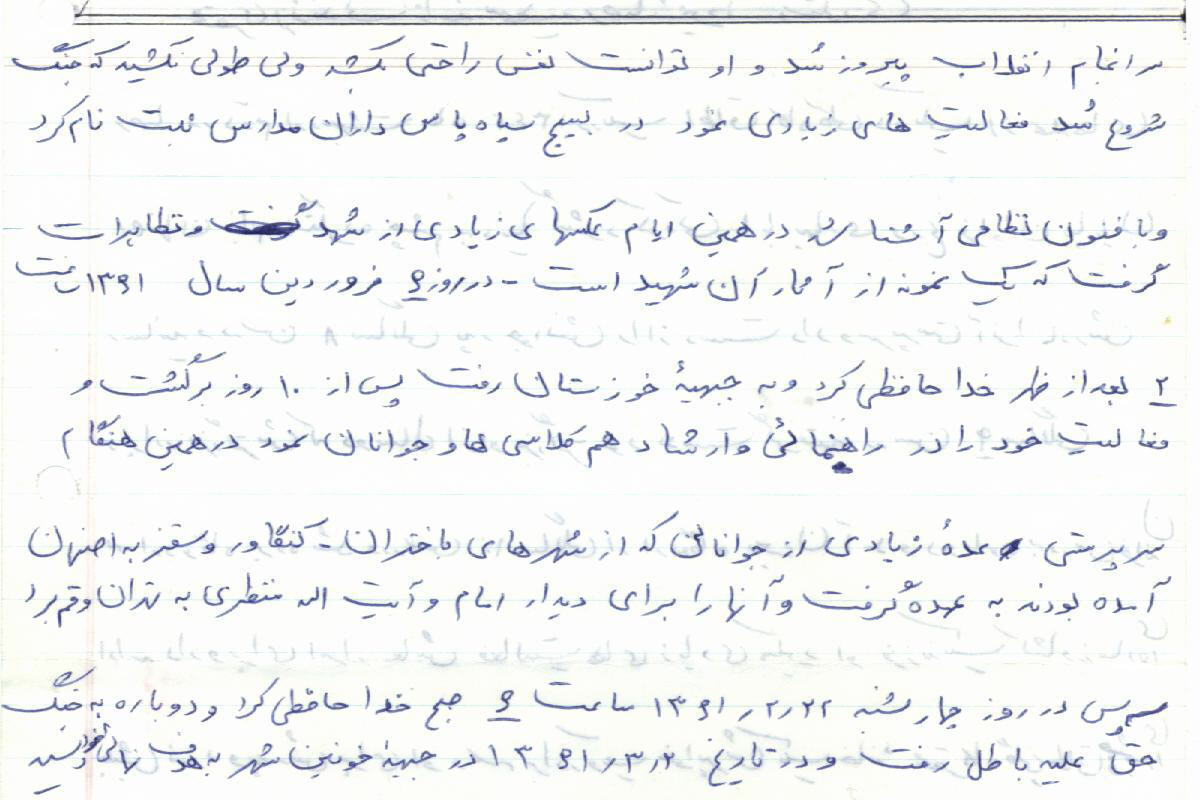 سرانجام انقلاب پیروز شد و او توانست نفس راحتی بکشد ولی طولی نکشید که جنگ
شروع شد فعالیت های زیادی نمود در بسیج سپاه پاس داران مدارس ثبت نام کرد
وبا فنون نظامی آشنا شد در همین ایام عکسهای زیادی از شهدا و تظاهرات
گرفت که یک نمونه از آثار آن شهید است - در روز ۶ فروردین سال ۱۳۶۱ ساعت
۲ بعد از ظهر خدا حافظی کرد و به جبههٔ خوزستان رفت پس از ۱۰ روز برگشت و
فعالیت خود را در راهنمائی وارشاد هم کلاسی ها و جوانان نمود در همین هنگام
سرپرستی عدهٔ زیادی از جوانانی که از شهرهای باختران - کنگاور و سقز به اصفهان
آمده بودند به عهده گرفت و آنها را برای دیدار امام و آیت اله منتظری به تهران و قم برد
سپس در روز چهارشنبه ۱۳۶۱٫۲٫۲۲ ساعت ۶ صبح خدا حافظی کرد و دوباره به جنگ
حق علیه باطل رفت و در تاریخ ۱۳۶۱٫۳٫۲ در جبههٔ خونین شهر به هدف نهائی خود رسید